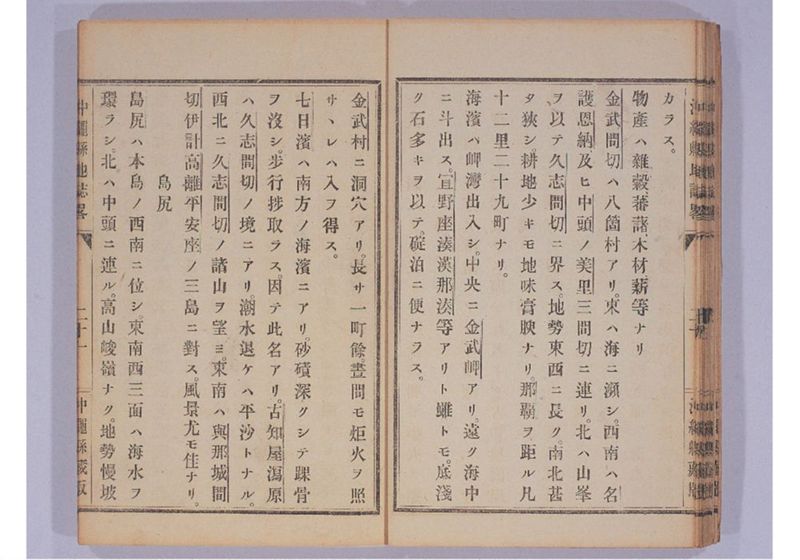 カラス。
物產ハ雜穀、蕃藷、木材、薪等ナリ
金武間切ハ八箇村アリ。東ハ海ニ瀕シ。西南ハ名
護恩納及ヒ中頭ノ美里三間切ニ連リ。北ハ山峯
ヲ以テ久志間切ニ界ス。地勢東西ニ長ク。南北甚
タ狹シ。耕地少キモ地味膏腴ナリ。那覇ヲ距ル凡
十二里二十九町ナリ。
海濱ハ岬灣出入シ。中央ニ金武岬アリ。遠ク海中
ニ斗出ス。宜野座湊漢那湊等アリト雖トモ。底淺
ク石多キヲ以テ。碇泊ニ便ナラス。
金武村ニ洞穴アリ。長サ一町餘。晝間モ炬火ヲ照
サヽレハ入ヲ得ス。
七日濱ハ南方ノ海濱ニアリ。砂磧深クシテ踝骨
ヲ沒シ。步行捗取ラス。因テ此名アリ。古知屋潟原
ハ久志間切ノ境ニアリ。潮水退ケハ平沙トナル。
西北ニ久志間切ノ諸山ヲ望ミ。東南ハ與那城間
切伊計高離平安座ノ三島ニ對ス。風景尤モ佳ナリ。
島尻
島尻ハ本島ノ西南ニ位シ。東南西三面ハ海水ヲ
環ラシ。北ハ中頭ニ連ル。高山峻嶺ナク。地勢慢坡
沖繩縣地誌畧 二十一 沖繩縣藏版